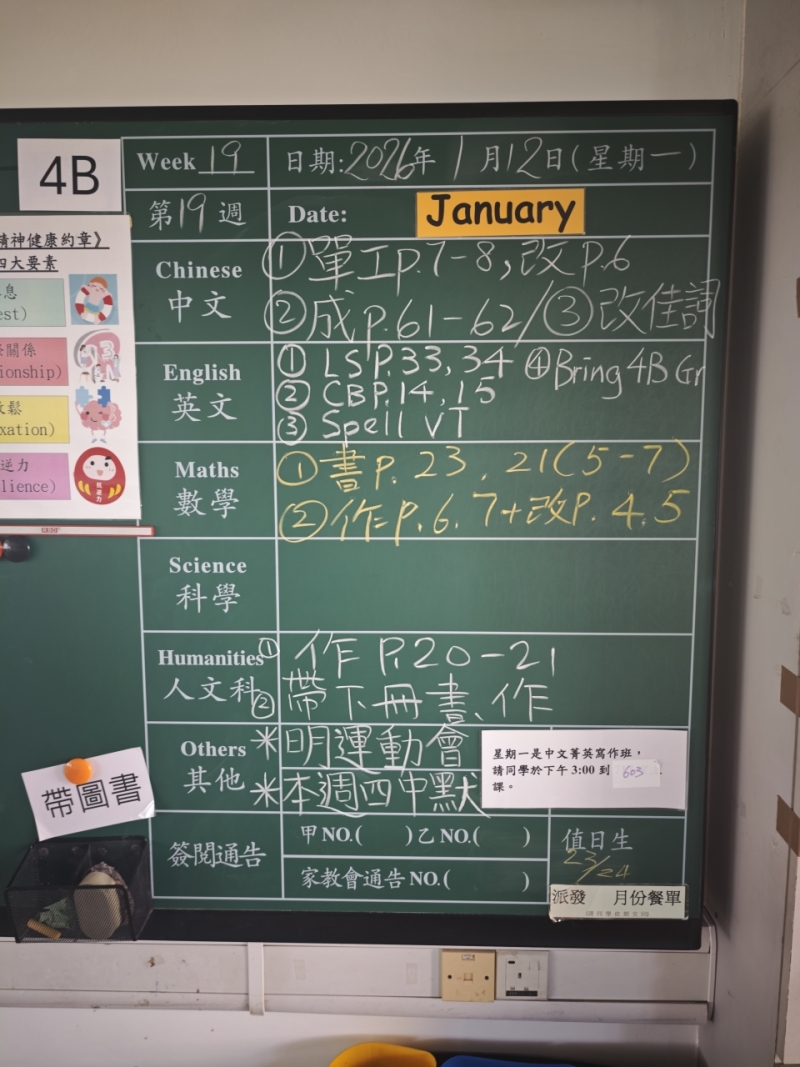 4B
Week 19
日期:2026年1月12日(星期一)
第19週
Date: January
精神健康約章》
四大要素
息
est)
關係
ionship)
鬆
xation)
逆力
lience)
Chinese
中文
①單工p.7-8,改p.6
②成p.61-62/③改佳詞
English
英文
①LS P.33,34 ④Bring 4B Gr
②CB P.14,15
③Spell VT
Maths
數學
①書P.23.21(5-7)
②作=P.6.7+改P.4.5
Science
科學
Humanities
人文科
①作 P.20-21
②帶下冊書、作
Others
其他
*明運動會
*本週四中默
星期一是中文菁英寫作班,
請同學於下午 3:00 到 603
課。
帶圖書
簽閱通告
甲NO.( )乙NO.( )
家教會通告NO.( )
值日生
23/24
派發 月份餐單